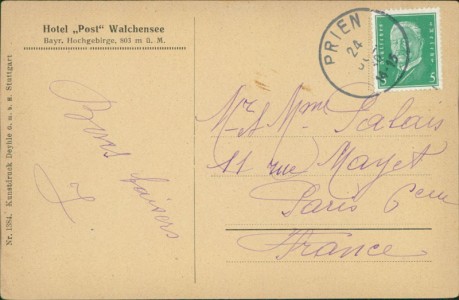 Hotel „Post“ Walchensee
Bayr. Hochgebirge, 803 m ü. M.
Nr. 1284. Kunstdruck Deyhle u. a. s. Stuttgart
Bons baisers
PRIEN
24
5 5
Mr & Mme Palais
11 rue Mayet
Paris 6em
France